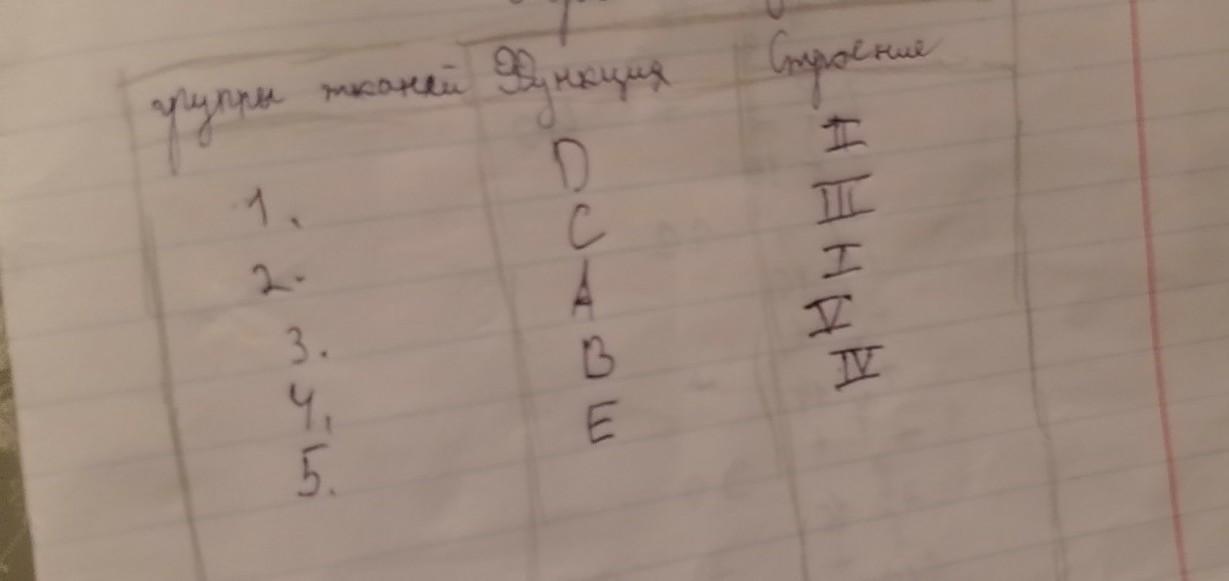 группы тканей Функция Строение
1. D II
2. C III
3. A I
4. B V
5. E IV